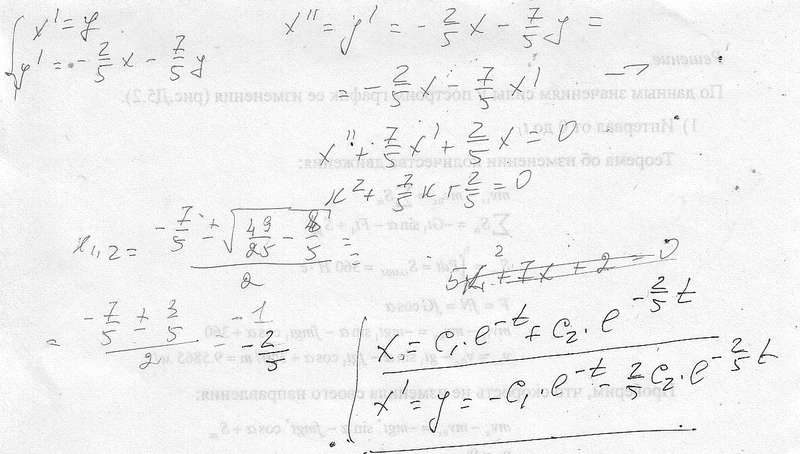 x' = y
y' = -2/5 x - 7/5 y
x'' = y' = -2/5 x - 7/5 y =
= -2/5 x - 7/5 x' →
x'' + 7/5 x' + 2/5 x = 0
к² + 7/5 к + 2/5 = 0
= (-7/5 ± 3/5)/2 = -1
-2/5
x = C₁·e^(-t) + C₂·e^(-2/5 t)
x' = y = -C₁·e^(-t) - 2/5 C₂·e^(-2/5 t)
Решение.
По данным значениям силы построим график ее изменения (рис.Д5.2).
1) Интервал от 0 до t₁
Теорема об изменении количества движения:
F = fN = fG cosα
Проверим, что скорость не изменила своего направления: